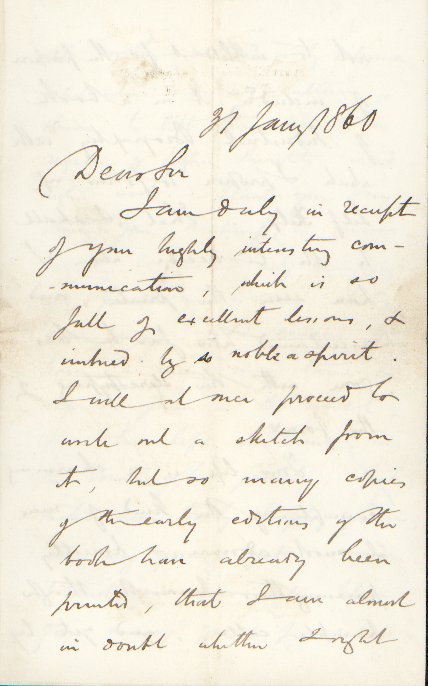 31 Jany 1860
Dear Sir
I am duly in receipt
of your highly interesting com-
-munication, which is so
full of excellent lessons, &
imbued by so noble a spirit.
I will at once proceed to
work out a sketch from
it, but so many copies
of the early editions of the
book have already been
printed, that I am almost
in doubt whether I ought